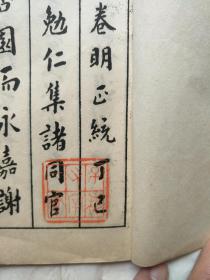 卷明正統丁巳
勉仁集諸同官
園而永嘉謝